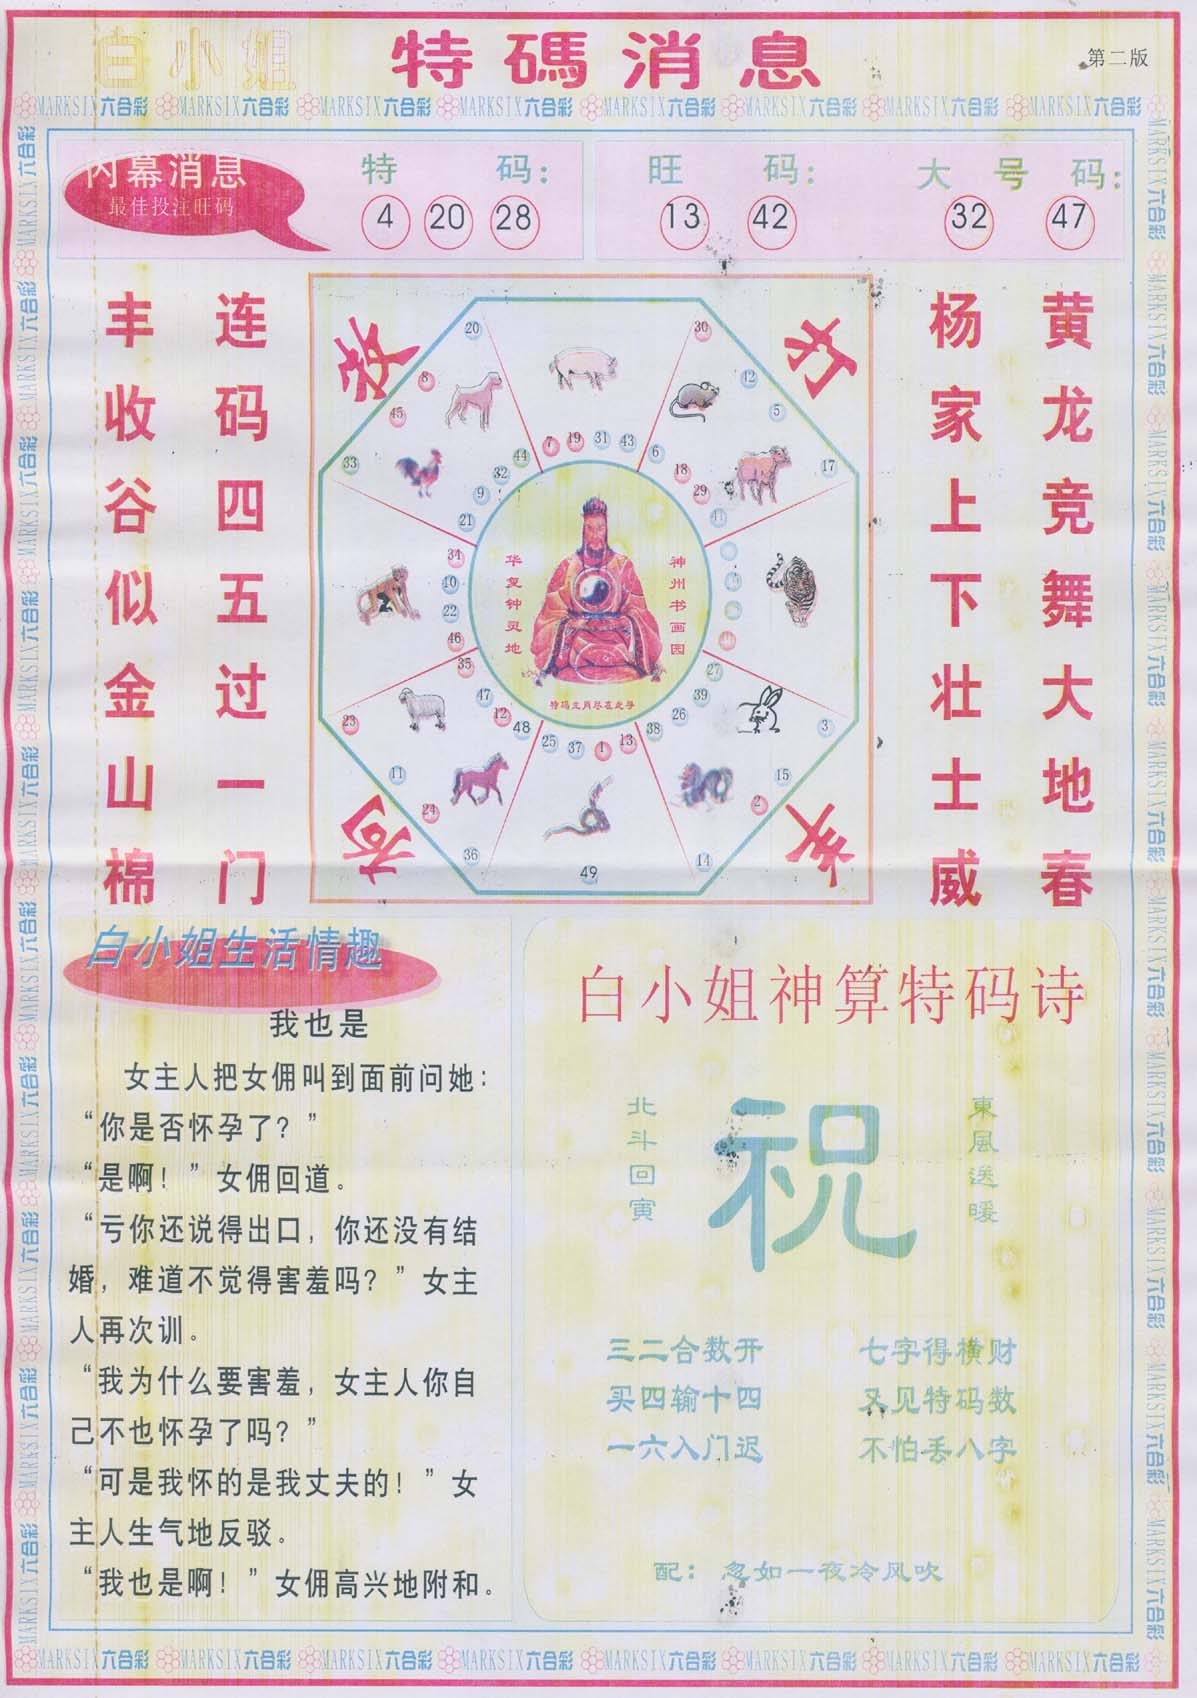 白小姐 特碼消息
第二版
MARKSIX六合彩 MARKSIX六合彩 MARKSIX六合彩 MARKSIX六合彩 MARKSIX六合彩 MARKSIX六合彩 MARKSIX六合彩 MARKSIX六合彩
内幕消息
最佳投注旺码
特 码:
4 20 28
旺 码:
13 42
大 号 码:
32 47
黄龙竞舞大地春
杨家上下壮士威
连码四五过一门
丰收谷似金山棉
20 30
8 42
45 5
33 17
7 19 31 43
44 6
32 18
9 29
21 41
34
10
22
46
35 27
47 39
12 26
48 38
25 37 1 13
23 3
11 15
24 2
36 14
49
神州书画园
华复钟灵地
特码生肖尽在此寻
白小姐生活情趣
我也是
女主人把女佣叫到面前问她:
“你是否怀孕了?”
“是啊!”女佣回道。
“亏你还说得出口，你还没有结
婚，难道不觉得害羞吗?”女主
人再次训。
“我为什么要害羞，女主人你自
己不也怀孕了吗?”
“可是我怀的是我丈夫的!”女
主人生气地反驳。
“我也是啊!”女佣高兴地附和。
白小姐神算特码诗
東風送暖
祝
北斗回寅
三二合数开 七字得横财
买四输十四 又见特码数
一六入门迟 不怕丢八字
配: 忽如一夜冷风吹
MARKSIX六合彩 MARKSIX六合彩 MARKSIX六合彩 MARKSIX六合彩 MARKSIX六合彩 MARKSIX六合彩 MARKSIX六合彩 MARKSIX六合彩